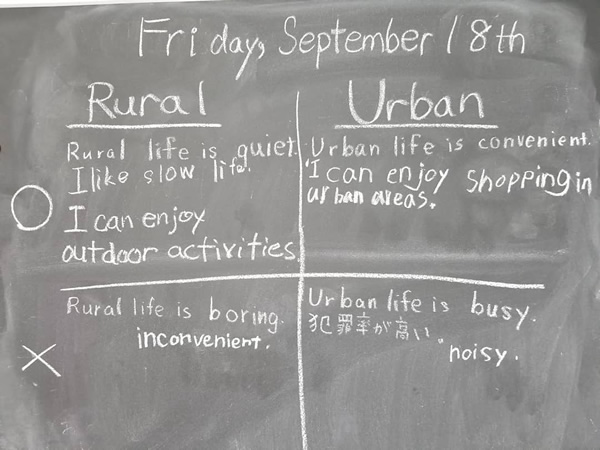 Friday, September 18th
Rural
Rural life is quiet.
I like slow life.
I can enjoy
outdoor activities.
Urban
Urban life is convenient.
I can enjoy shopping in
urban areas.
Rural life is boring.
inconvenient.
Urban life is busy.
犯罪率が高い。
noisy.